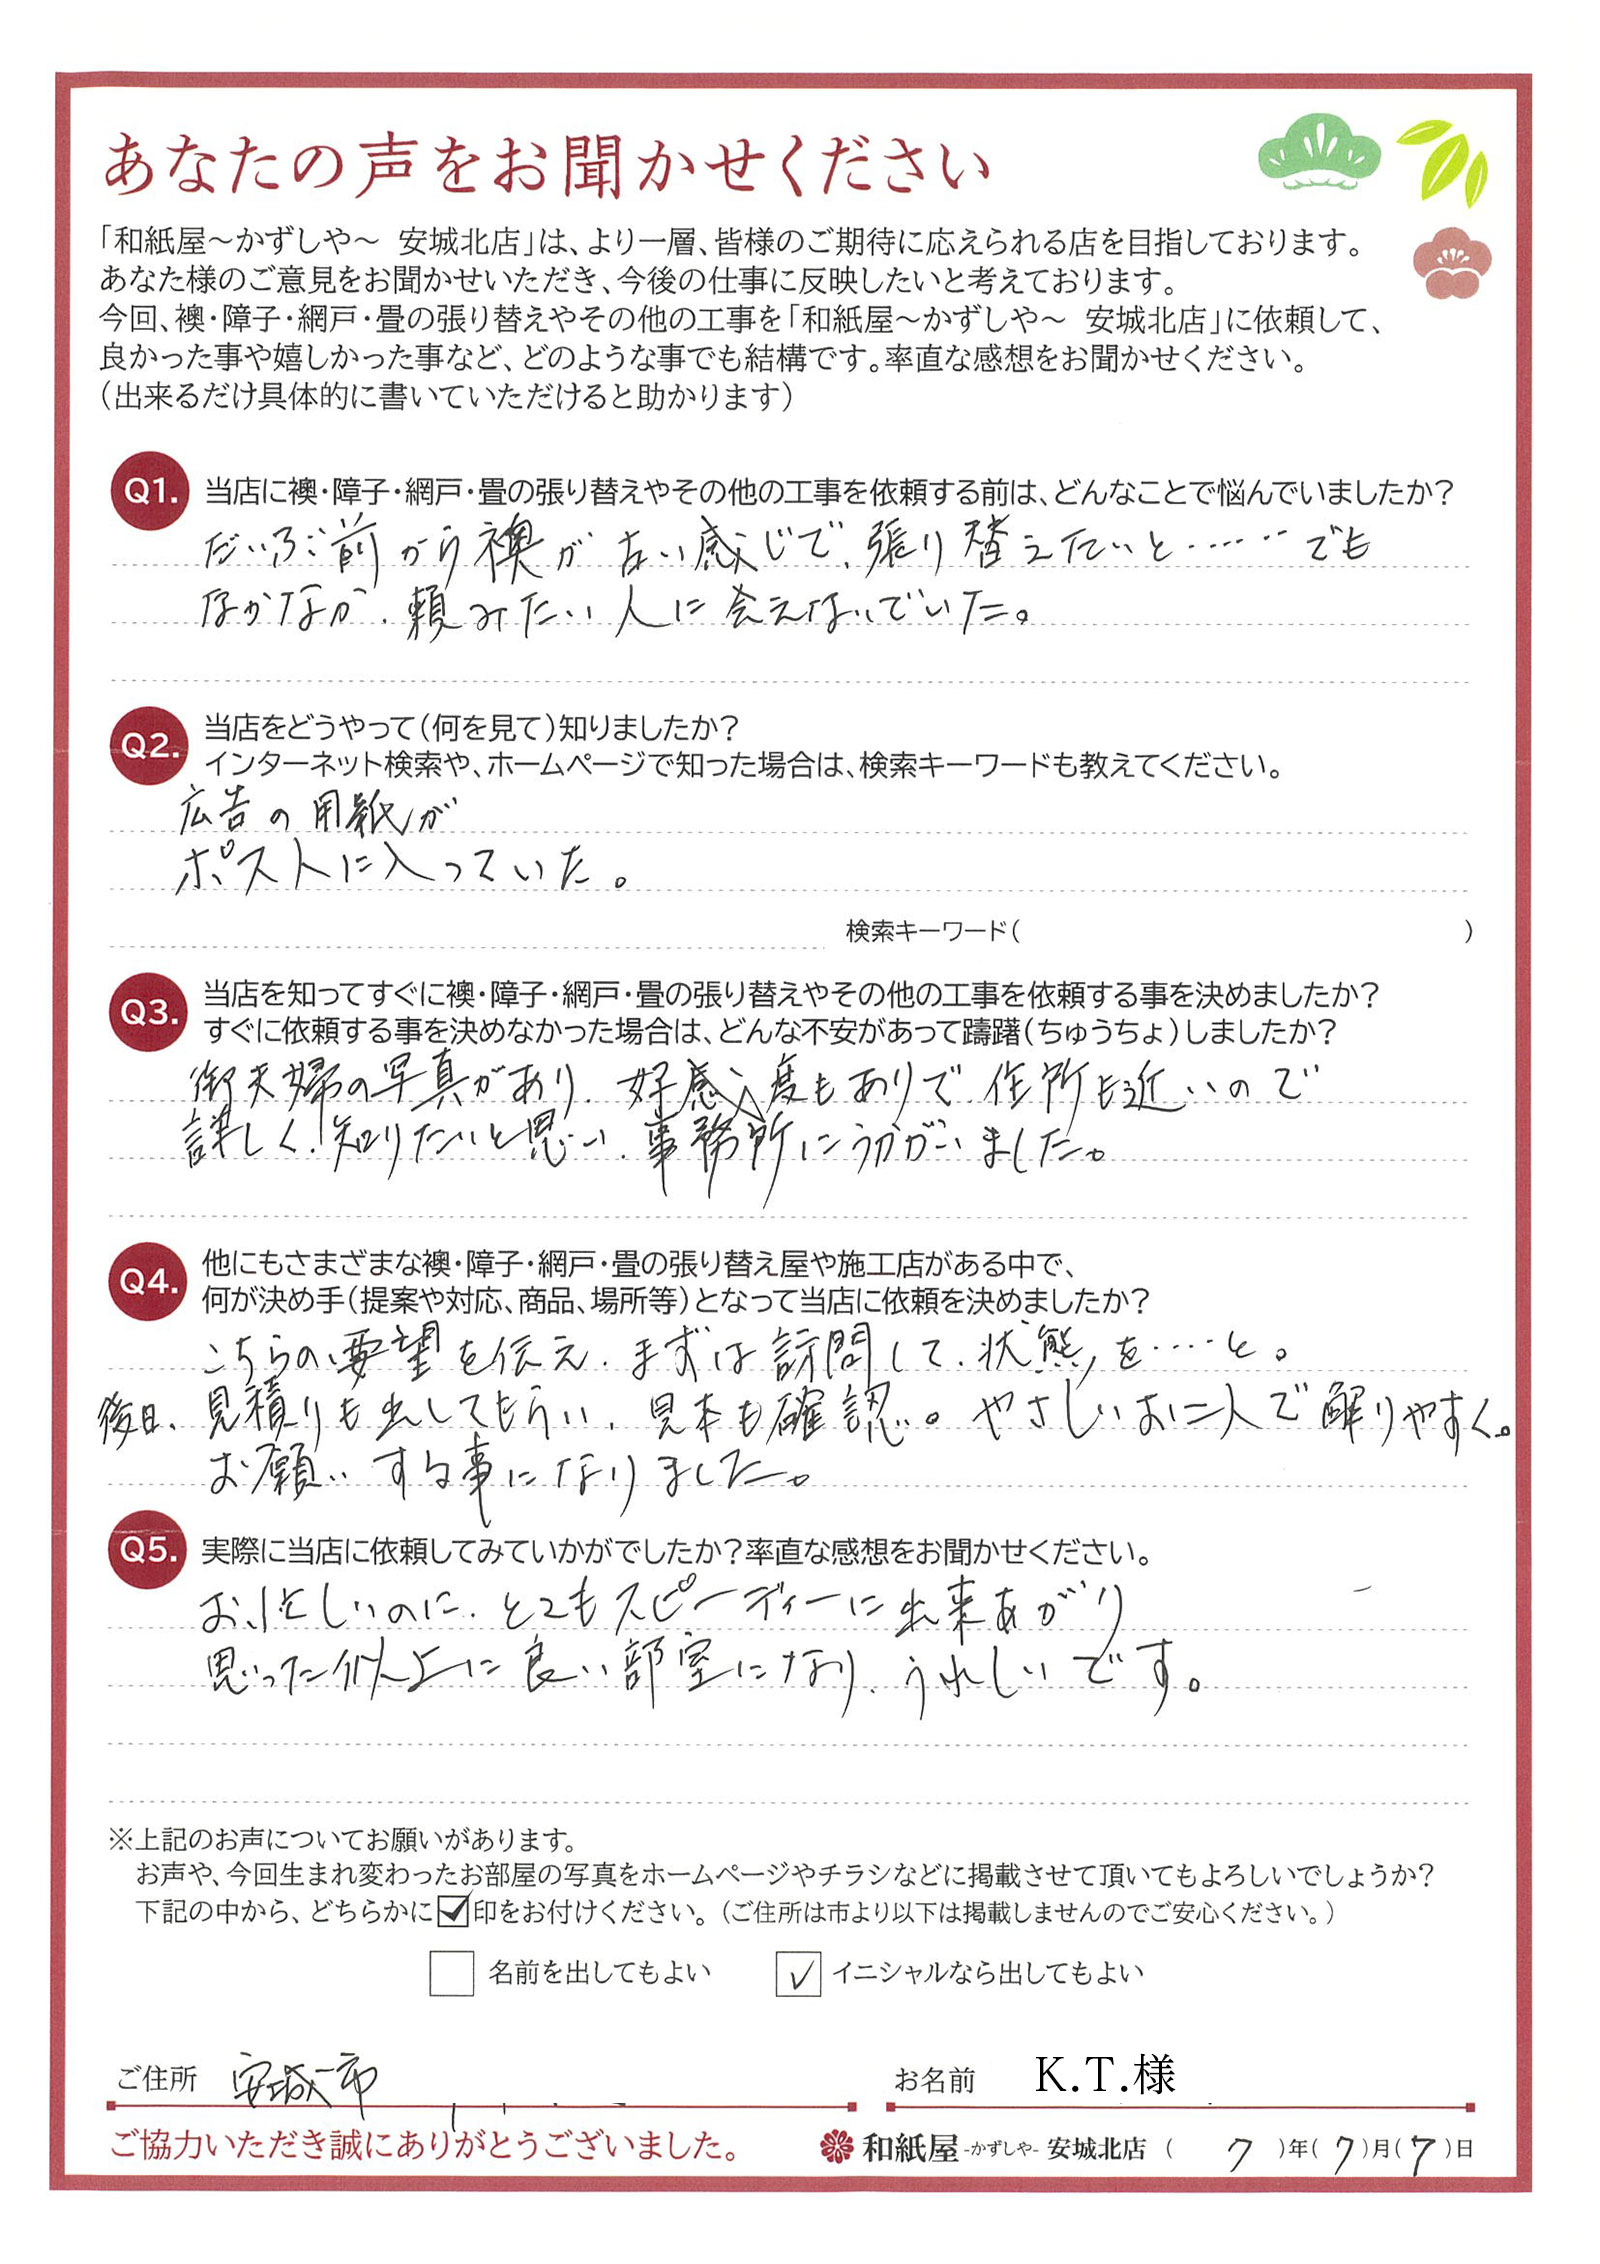 あなたの声をお聞かせください
「和紙屋～かずしや～ 安城北店」は、より一層、皆様のご期待に応えられる店を目指しております。
あなた様のご意見をお聞かせいただき、今後の仕事に反映したいと考えております。
今回、襖・障子・網戸・畳の張り替えやその他の工事を「和紙屋～かずしや～ 安城北店」に依頼して、
良かった事や嬉しかった事など、どのような事でも結構です。率直な感想をお聞かせください。
（出来るだけ具体的に書いていただけると助かります）
Q1. 当店に襖・障子・網戸・畳の張り替えやその他の工事を依頼する前は、どんなことで悩んでいましたか？
だいぶ前から襖が古い感じで、張り替えたいと……でも
なかなか、頼みたい人に会えないでいた。
Q2. 当店をどうやって（何を見て）知りましたか？
インターネット検索や、ホームページで知った場合は、検索キーワードも教えてください。
広告の用紙が
ポストに入っていた。
検索キーワード（ ）
Q3. 当店を知ってすぐに襖・障子・網戸・畳の張り替えやその他の工事を依頼する事を決めましたか？
すぐに依頼する事を決めなかった場合は、どんな不安があって躊躇（ちゅうちょ）しましたか？
御夫婦の写真があり、好感度もありで、住所も近いので
詳しく知りたいと思い、事務所にうかがいました。
Q4. 他にもさまざまな襖・障子・網戸・畳の張り替え屋や施工店がある中で、
何が決め手（提案や対応、商品、場所等）となって当店に依頼を決めましたか？
こちらの要望を伝え、まずは訪問して、状態を……と。
後日、見積りも出してもらい、見本も確認。やさしいお二人で解りやすく。
お願いする事になりました。
Q5. 実際に当店に依頼してみていかがでしたか？率直な感想をお聞かせください。
お忙しいのに、とてもスピーディーに出来あがり
思った以上に良い部室になり、うれしいです。
※上記のお声についてお願いがあります。
お声や、今回生まれ変わったお部屋の写真をホームページやチラシなどに掲載させて頂いてもよろしいでしょうか？
下記の中から、どちらかに☑印をお付けください。（ご住所は市より以下は掲載しませんのでご安心ください。）
□ 名前を出してもよい ☑ イニシャルなら出してもよい
ご住所 安城市 お名前 K.T.様
ご協力いただき誠にありがとうございました。 和紙屋 -かずしや- 安城北店 （ 7 ）年（ 7 ）月（ 7 ）日